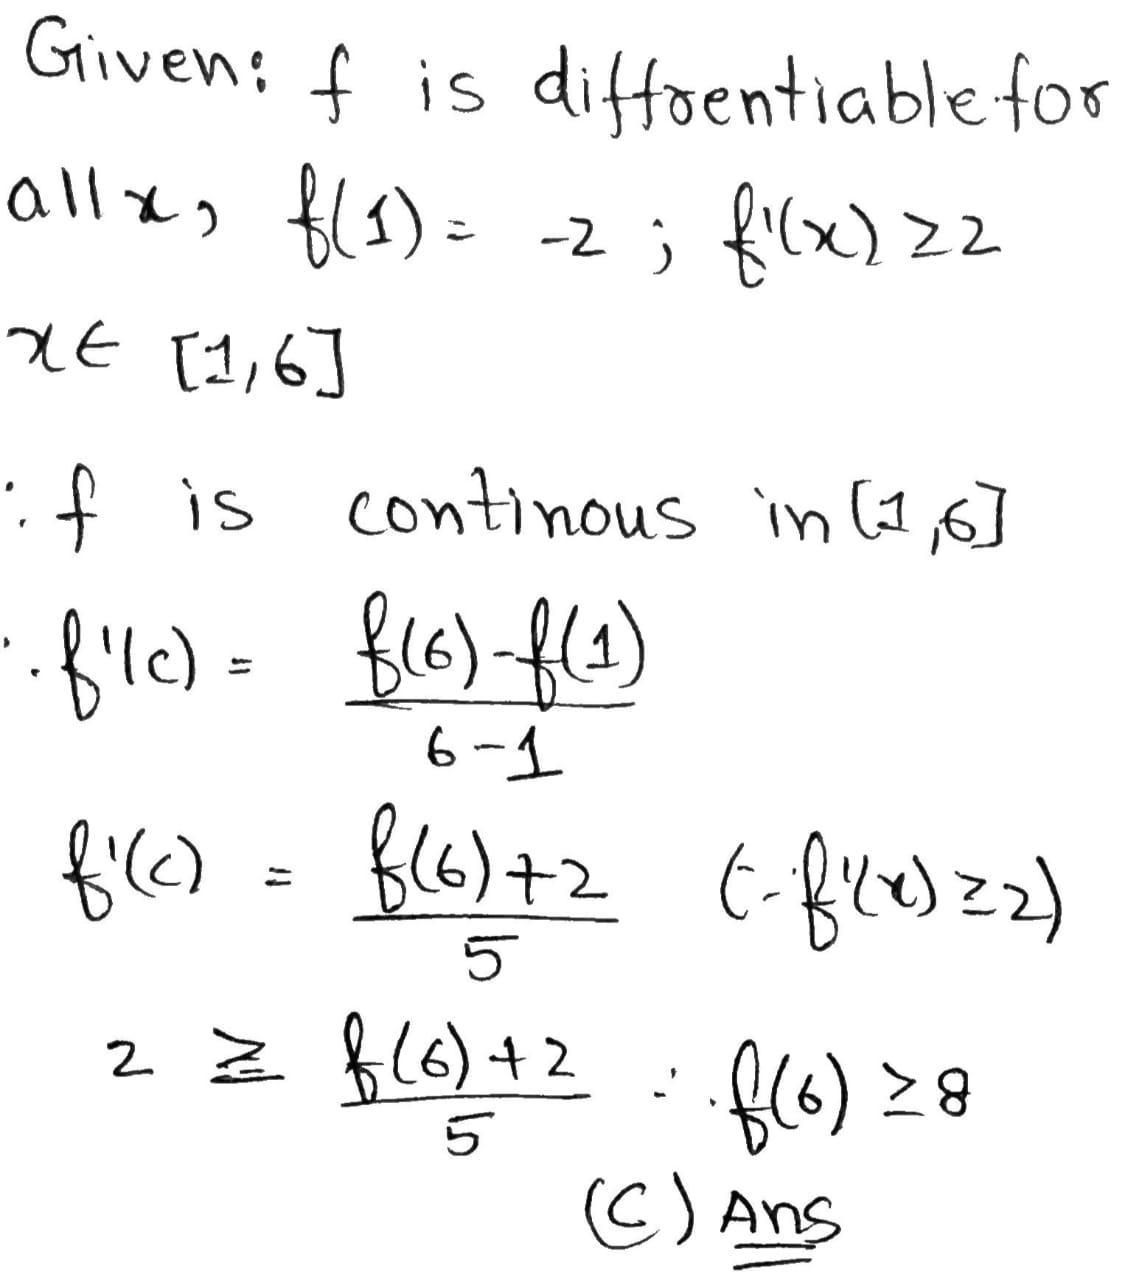 Given: f is diffrentiable for
all x, f(1) = -2 ; f'(x) ≥2
x∈ [1,6]
∵ f is continous in [1,6]
∴ f'(c) = f(6)-f(1)
6-1
f'(c) = f(6)+2 (∵ f'(x) ≥2)
5
2 ≥ f(6)+2 ∴ f(6) ≥8
5
(C) Ans